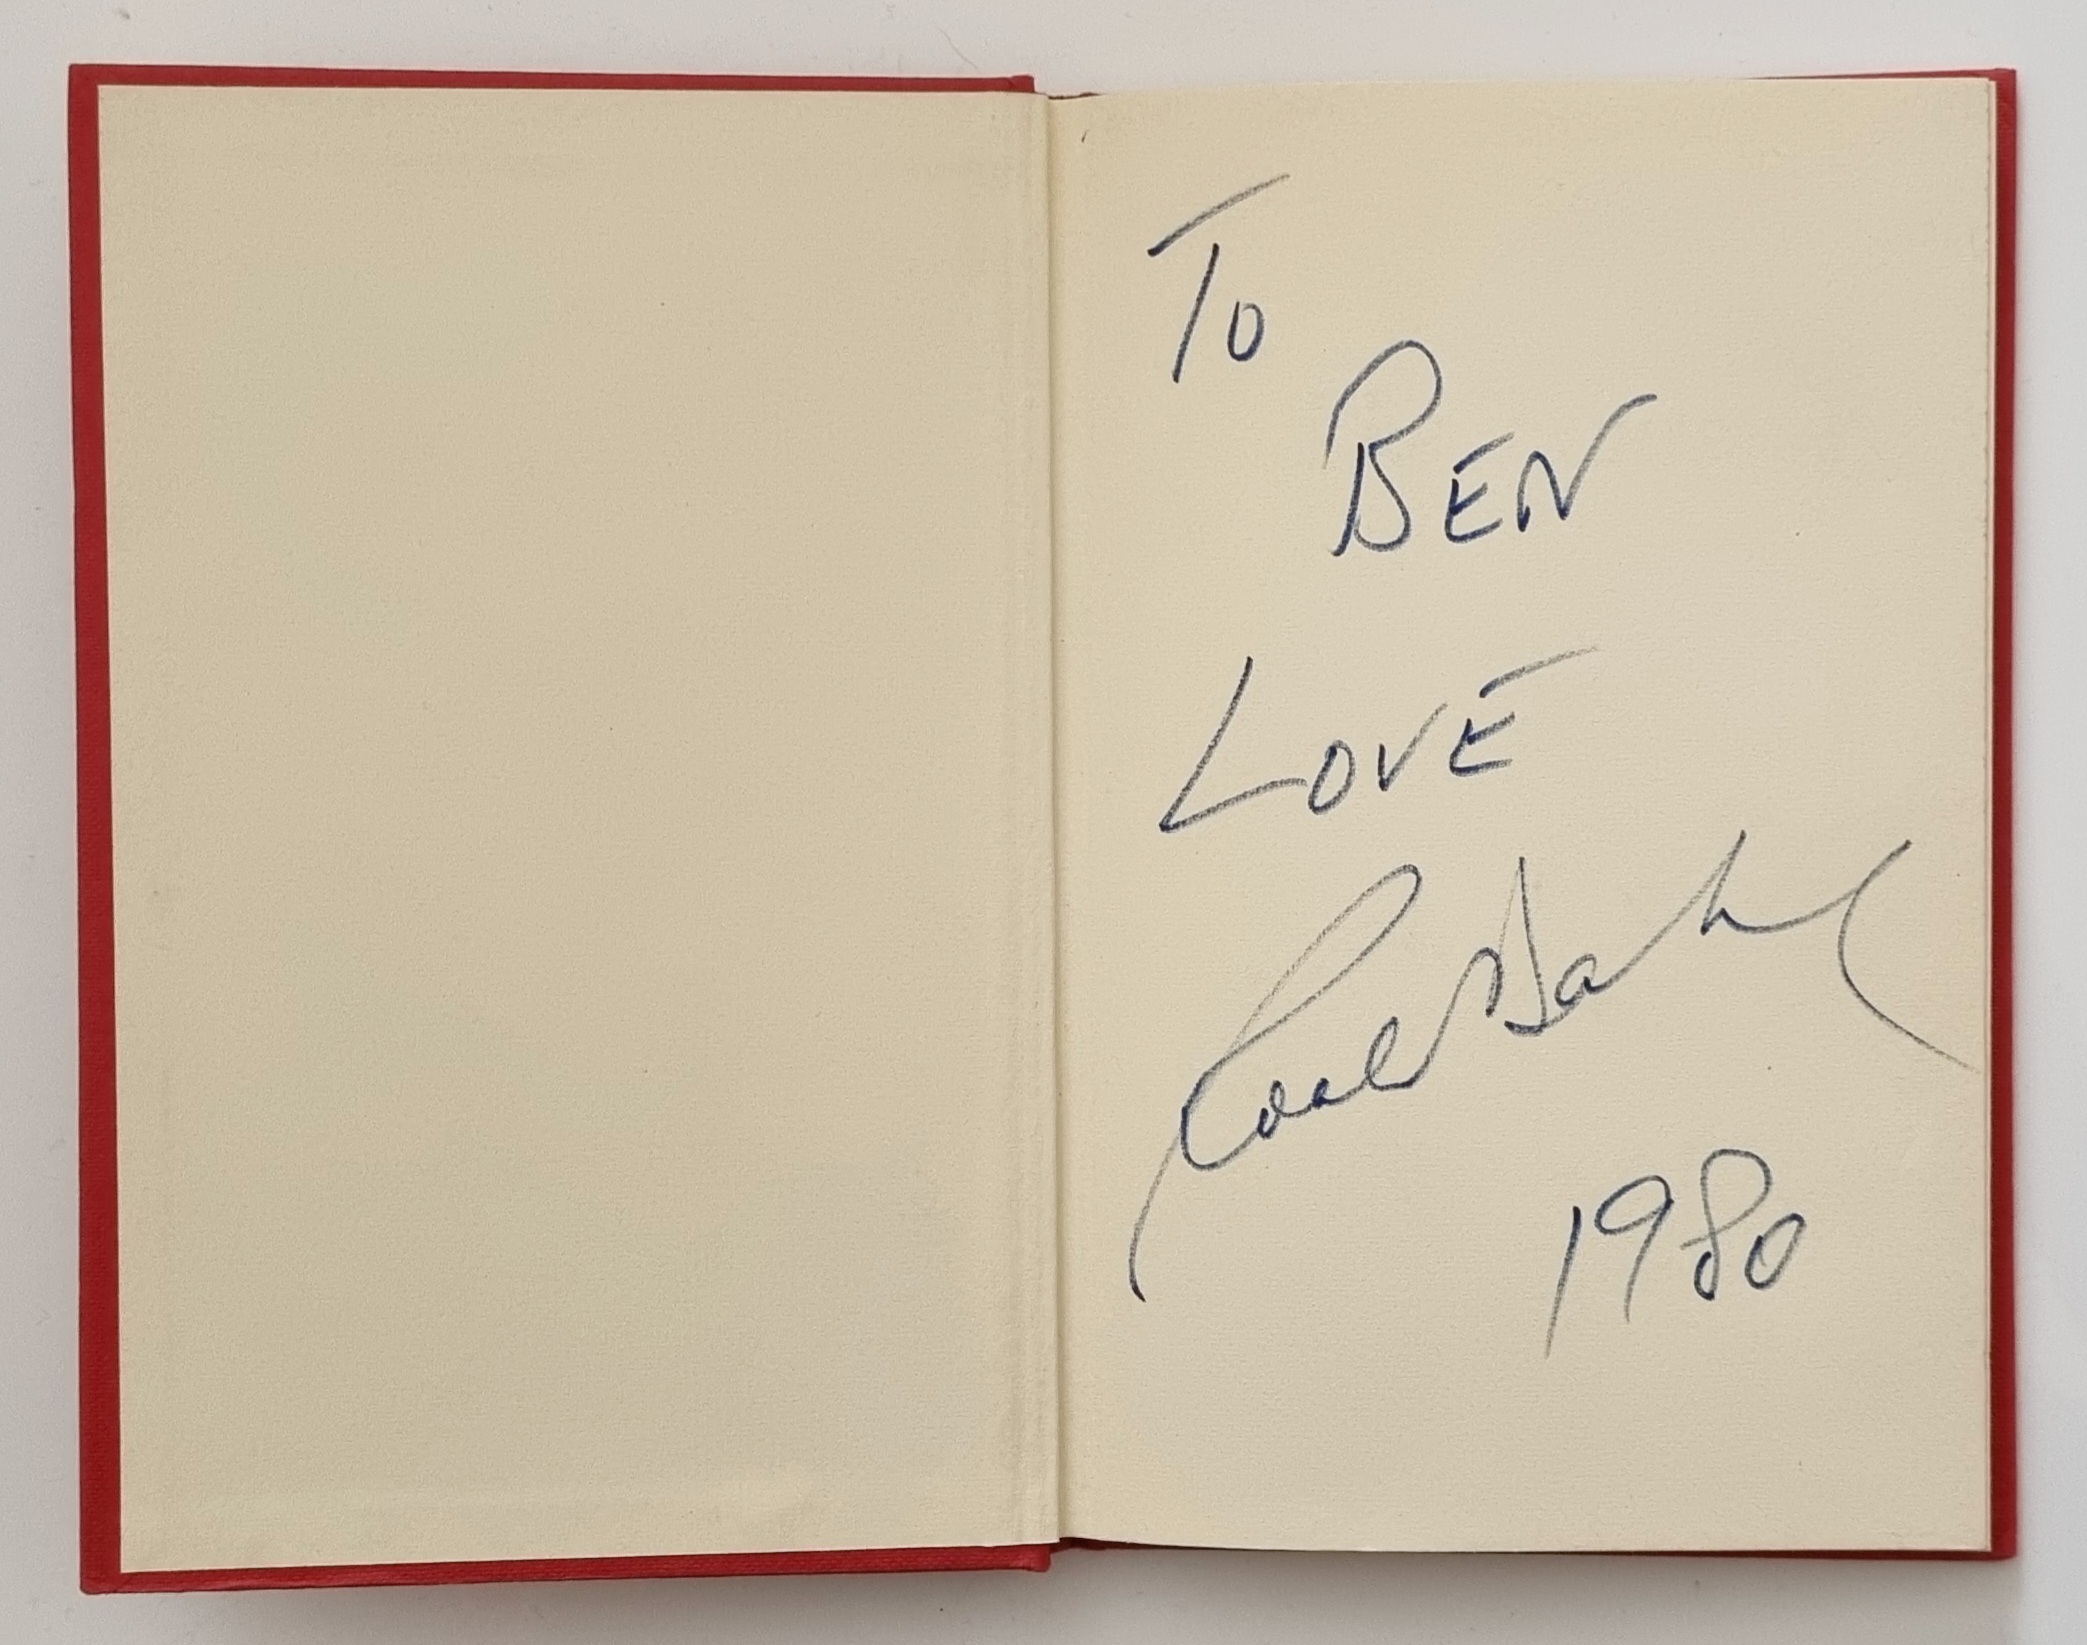 To
BEN
LOVE
Roald Dahl
1980